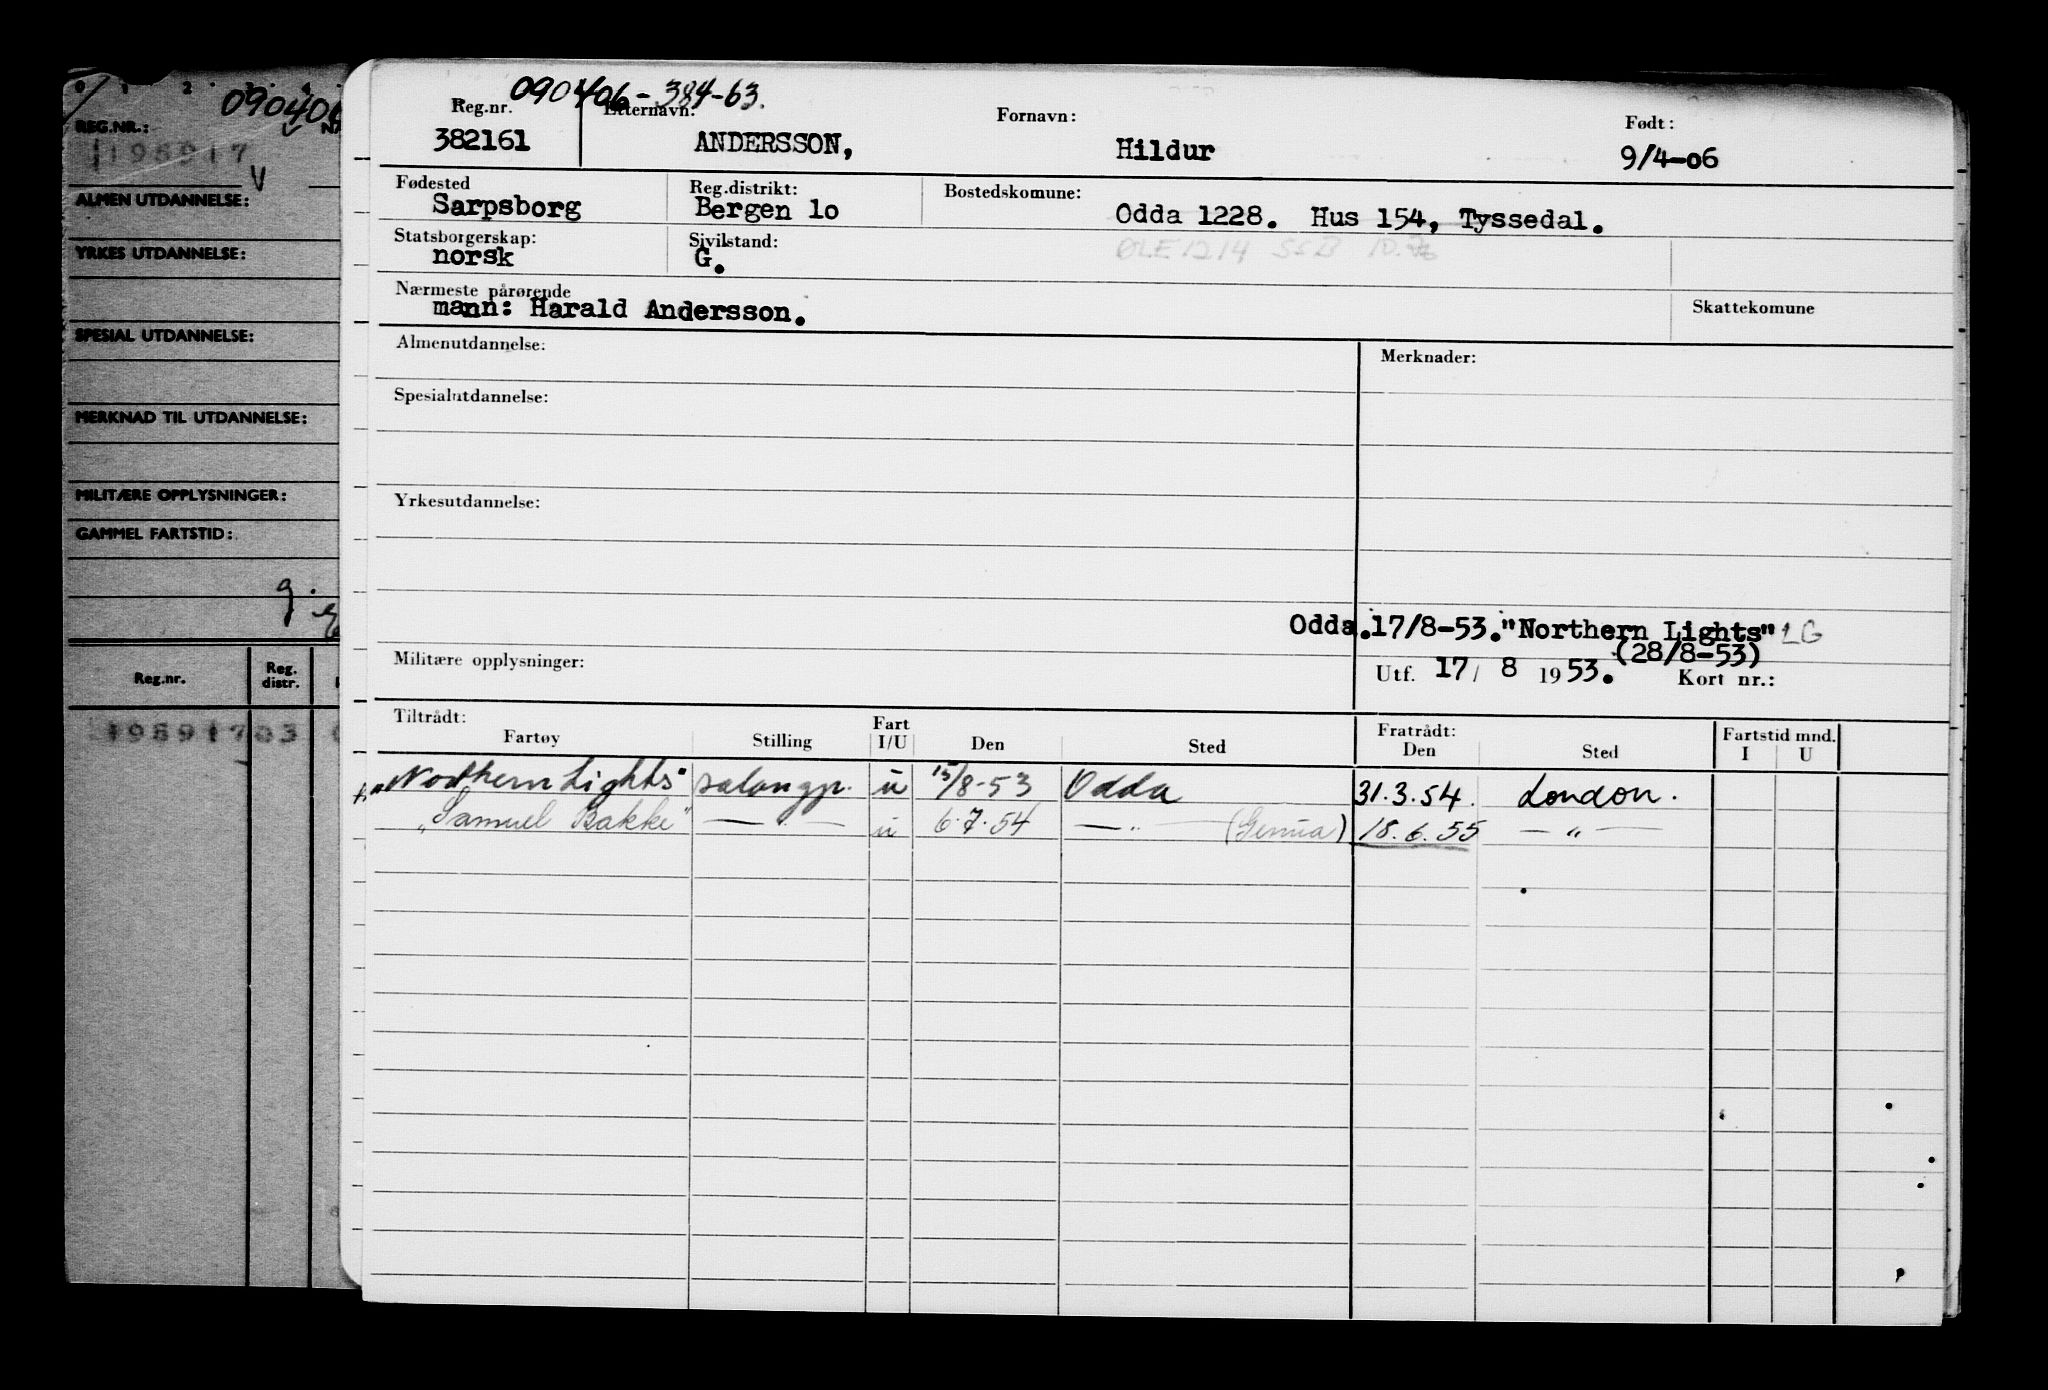 0 1 2
090406
REG.NR.: NA
198917
V
ALMEN UTDANNELSE:
YRKES UTDANNELSE:
SPESIAL UTDANNELSE:
MERKNAD TIL UTDANNELSE:
MILITÆRE OPPLYSNINGER:
GAMMEL FARTSTID:
g.
Reg.nr. Reg. distr.
198917 03
090406-384-63.
Reg.nr. Etternavn: Fornavn: Født:
382161 ANDERSSON, Hildur 9/4-06
Fødested Reg.distrikt: Bostedskomune:
Sarpsborg Bergen 1o Odda 1228. Hus 154, Tyssedal.
Statsborgerskap: Sivilstand: ØLE 1214
norsk G.
Nærmeste pårørende Skattekomune
mann: Harald Andersson.
Almenutdannelse: Merknader:
Spesialutdannelse:
Yrkesutdannelse:
Odda.17/8-53."Northern Lights" LG
(28/8-53)
Militære opplysninger: Utf. 17/ 8 1953. Kort nr.:
Tiltrådt: Fart Fratrådt: Fartstid mnd.
Fartøy Stilling I/U Den Sted Den Sted I U
"Northern Lights" salongp. u 15/8-53 Odda 31.3.54. London.
"Samuel Bakke" — " — u 6.7.54 — " — (Genua) 18.6.55 — " —